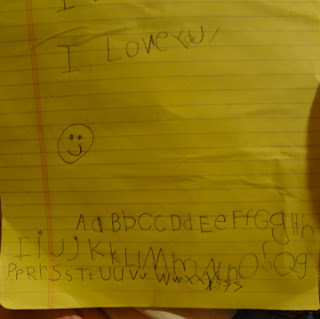 I
I Love You
Aa Bb Cc Dd Ee Ff Gg Hh
Ii Jj Kk Ll Mm Nn Oo Qq
Pp Rr Ss Tt Uu Vv Ww Xx